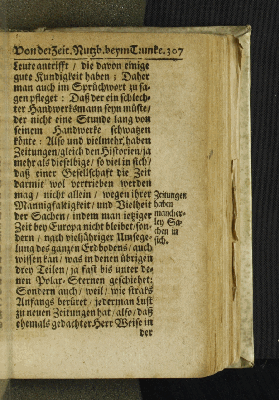 Von der Zeit. Nutzb. beym Trunke. 307
Leute antrifft / die davon einige
gute Kundigkeit haben ; Daher
man auch im Sprüchwort zu sa-
gen pfleget : Daß der ein schlech-
ter Handwerksmann seyn müste/
der nicht eine Stunde lang von
seinem Handwerke schwatzen
könte : Also und vielmehr haben
Zeitungen/gleich den Historien/ja
mehr als dieselbige/ so viel in sich/
daß einer Gesellschaft die Zeit
darmit wol vertrieben werden
mag / nicht allein / wegen ihrer
Mannigfaltigkeit / und Vielheit
der Sachen/ indem man ietziger
Zeit bey Europa nicht bleibet/son-
dern / nach vieljähriger Umsege-
lung des ganzen Erdbodens/ auch
wissen kan/ was in denen übrigen
drey Teilen/ ja fast bis unter de-
nen Polar-Sternen geschiehet:
Sondern auch/ weil/ wie straks
Anfangs berüret/ jederman Lust
zu neuen Zeitungen hat/also/daß
ehemals gedachter Herr Weise in
der
Zeitungen
haben
mancher-
ley Sa-
chen in
sich.